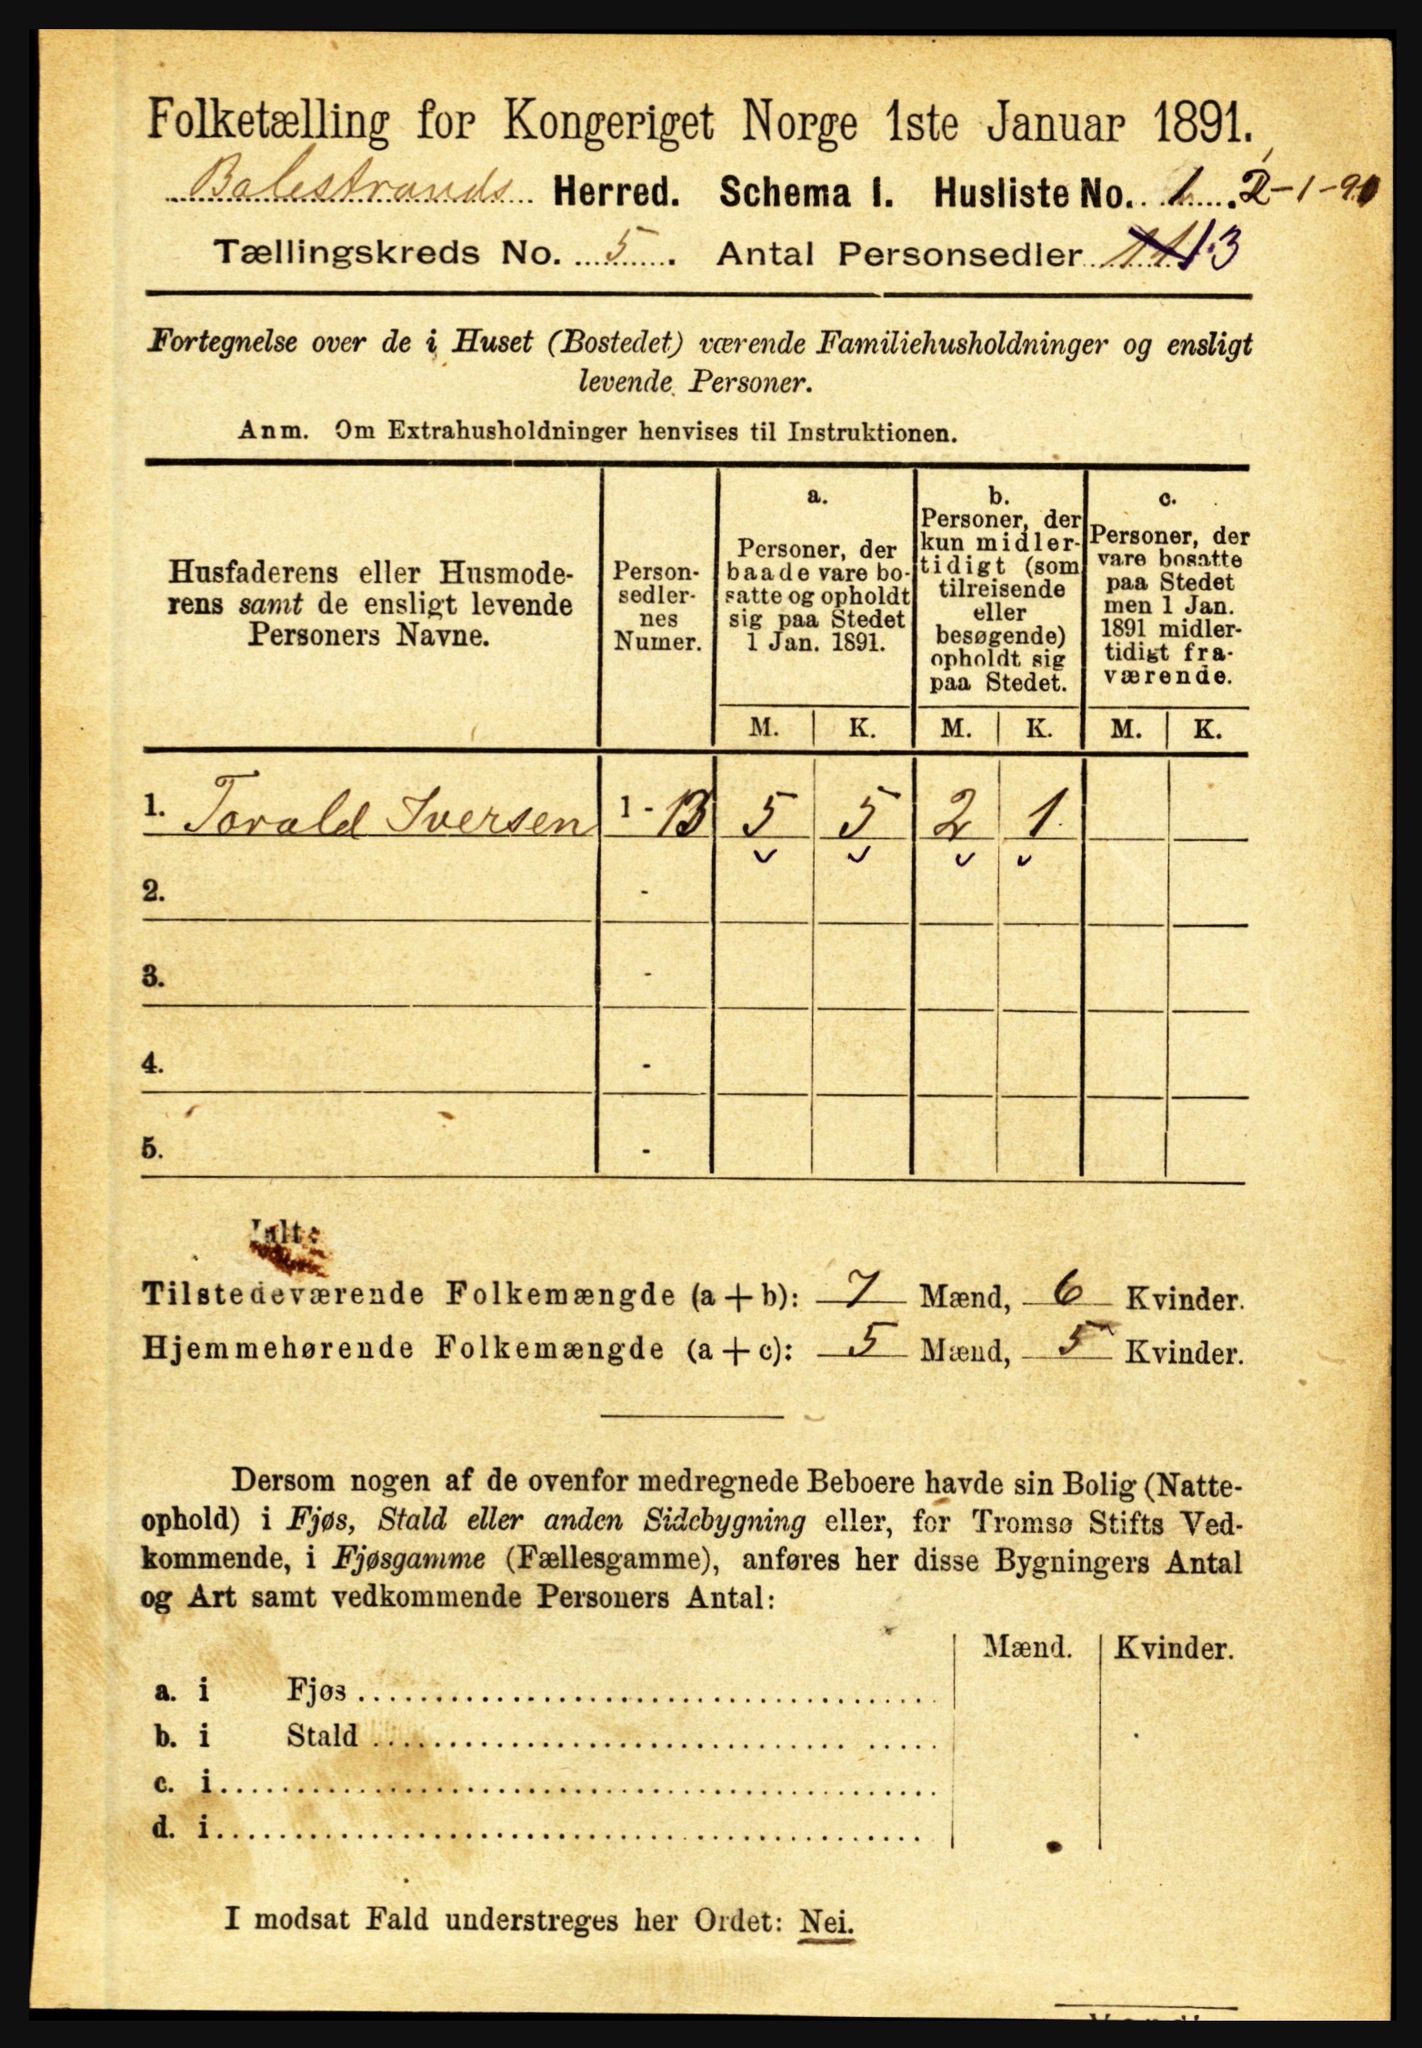 Folketælling for Kongeriget Norge 1ste Januar 1891.
Balestrands Herred. Schema I. Husliste No. 1. 
Tællingskreds No. 5. Antal Personsedler 13
Fortegnelse over de i Huset (Bostedet) værende Familiehusholdninger og ensligt
levende Personer.
Anm. Om Extrahusholdninger henvises til Instruktionen.
Husfaderens eller Husmode-
rens samt de ensligt levende
Personers Navne.
Person-
sedler-
nes
Numer.
a.
Personer, der
baade vare bo-
satte og opholdt
sig paa Stedet
1 Jan. 1891.
b.
Personer, der
kun midler-
tidigt (som
tilreisende
eller
besøgende)
opholdt sig
paa Stedet.
c.
Personer, der
vare bosatte
paa Stedet
men 1 Jan.
1891 midler-
tidigt fra-
værende.
M. K. M. K. M. K.
1. Torald Iversen 1 - 13 5 5 2 1
2. -
3. -
4. -
5. -
Ialt:
Tilstedeværende Folkemængde (a + b): 7 Mænd, 6 Kvinder.
Hjemmehørende Folkemængde (a + c): 5 Mænd, 5 Kvinder.
Dersom nogen af de ovenfor medregnede Beboere havde sin Bolig (Natte-
ophold) i Fjøs, Stald eller anden Sidebygning eller, for Tromsø Stifts Ved-
kommende, i Fjøsgamme (Fællesgamme), anføres her disse Bygningers Antal
og Art samt vedkommende Personers Antal:
Mænd. Kvinder.
a. i Fjøs
b. i Stald
c. i
d. i
I modsat Fald understreges her Ordet: Nei.